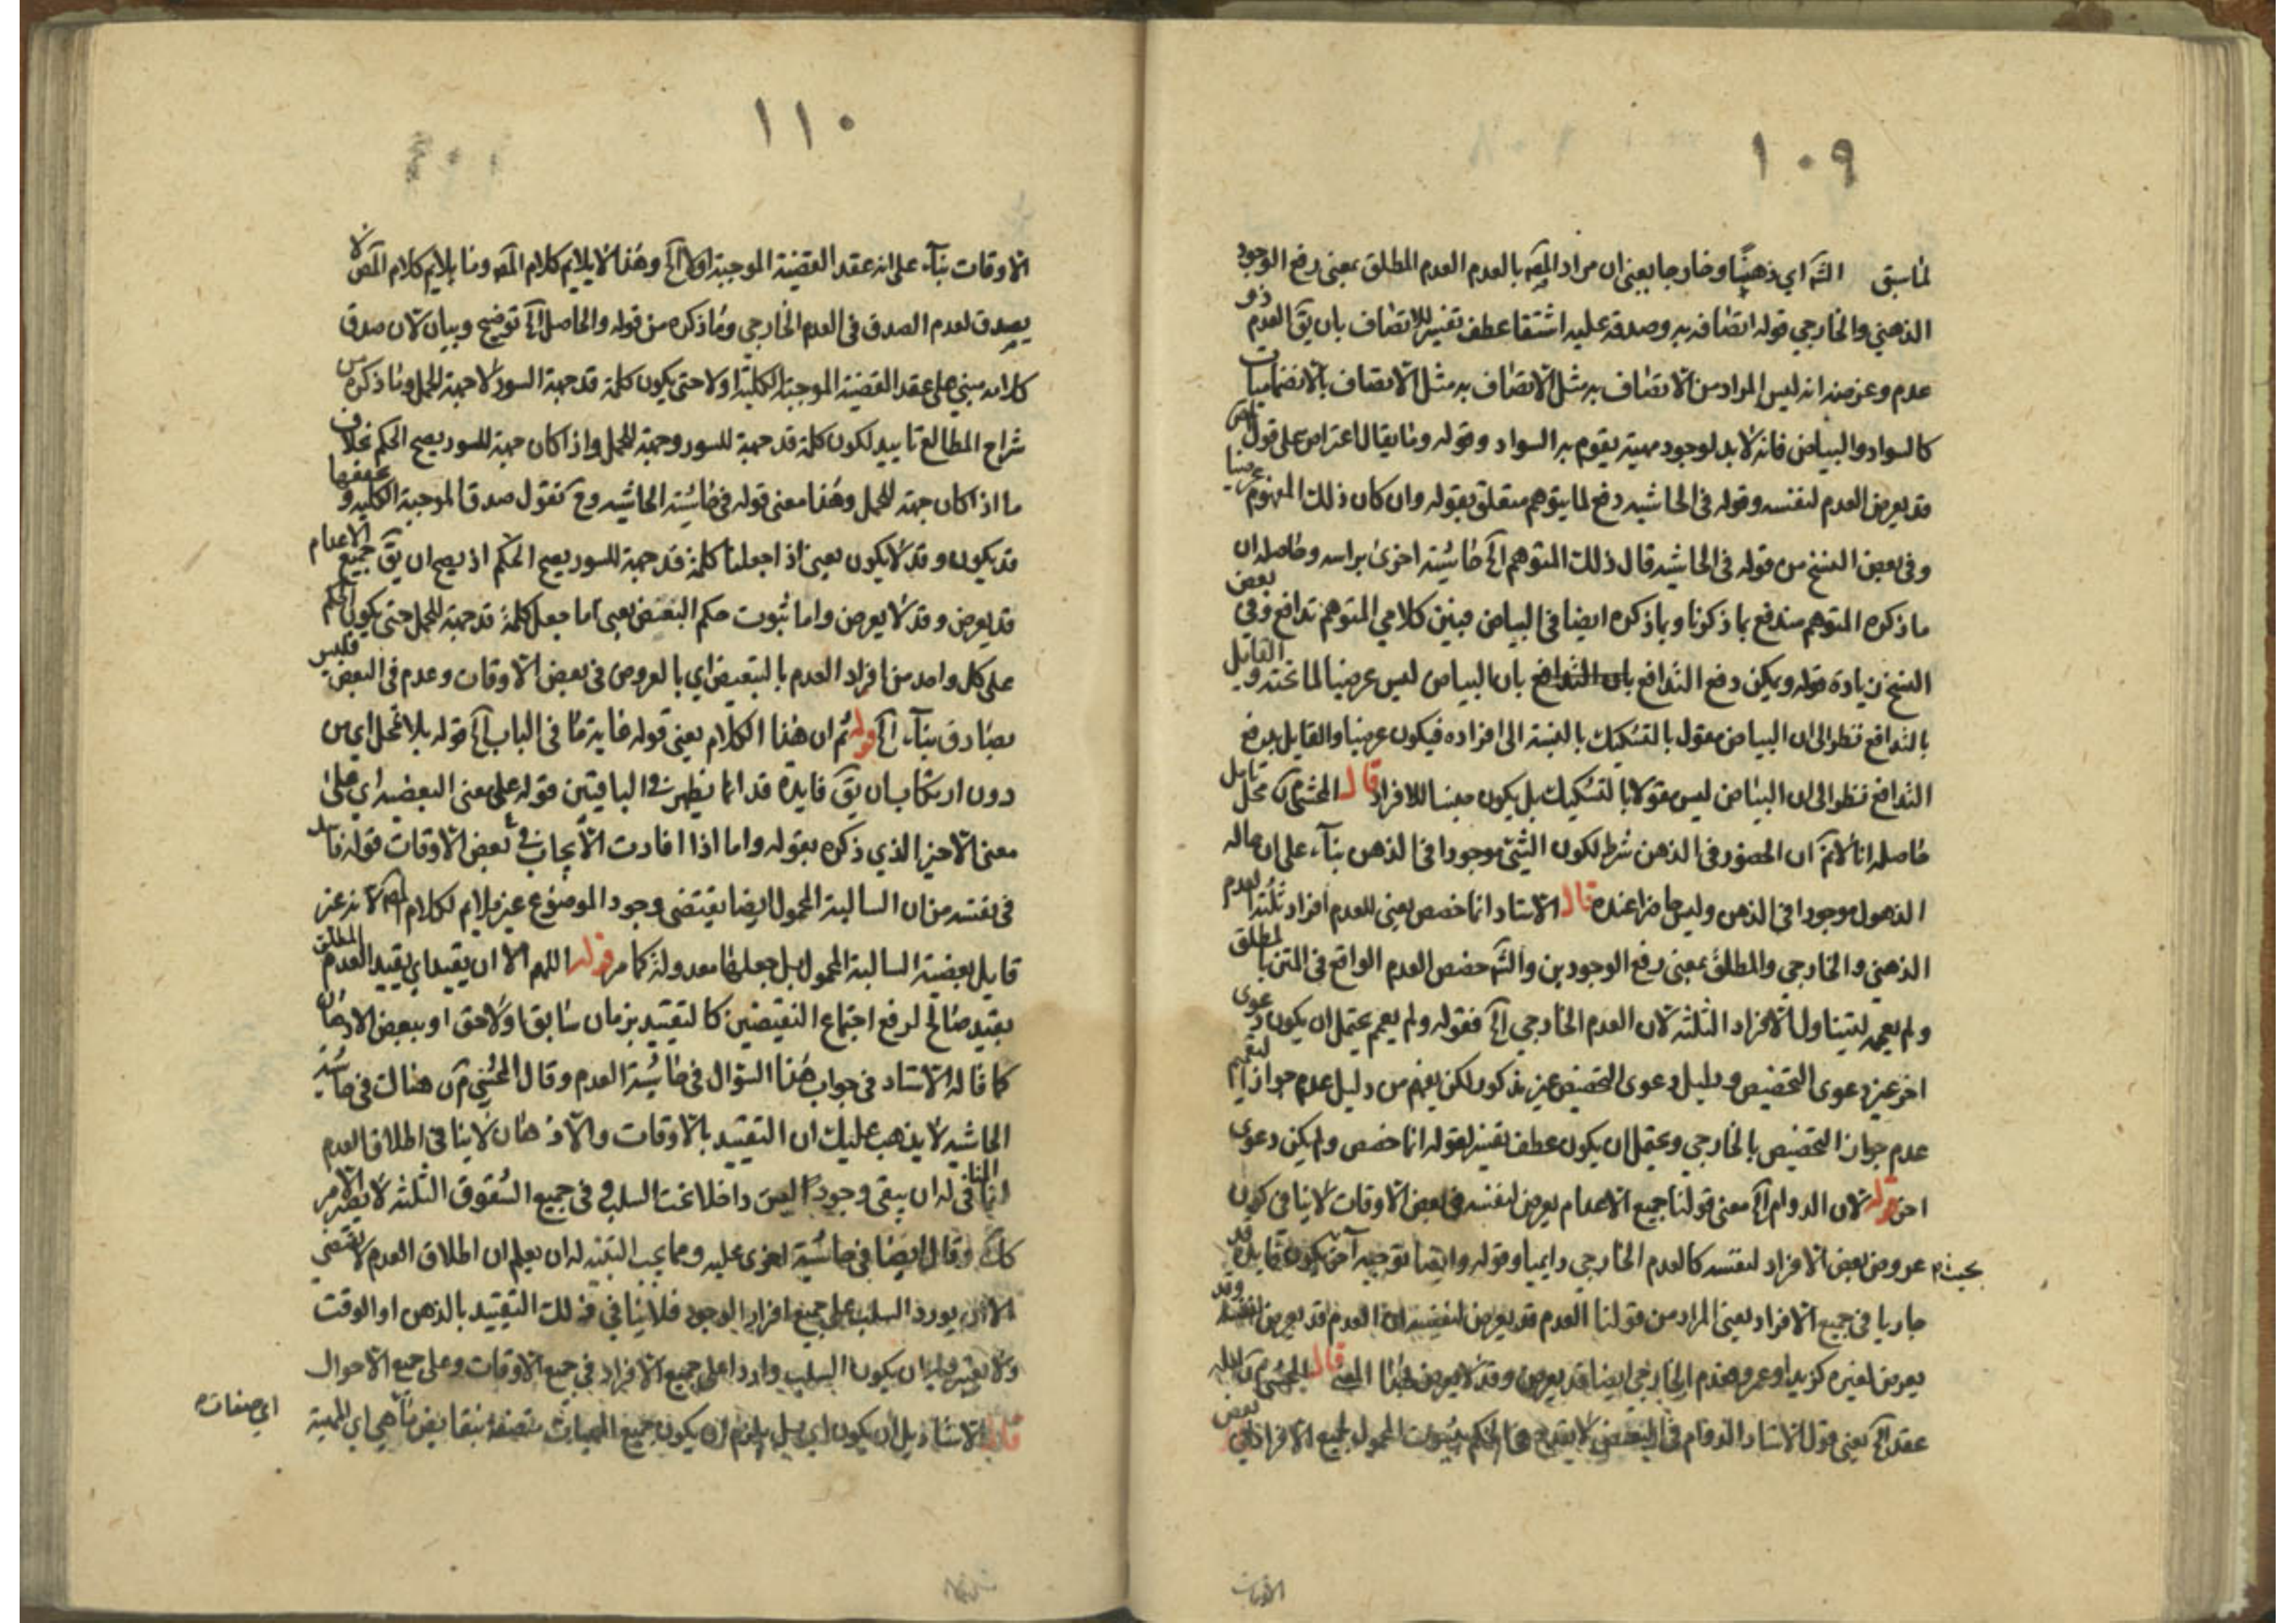 ١٠٩
لما سبق الش اي ذهنيا وخارجا يعني ان مراد المص بالعدم العدم المطلق بمعنى رفع الوجود
الذهني والخارجي قوله اتصافه به وصدقه عليه اشتقاقا عطف تفسير للاتصاف بان يق العدم ذو
عدم وغرضه انه ليس المراد من الاتصاف به مثل الاتصاف به مثل الاتصاف بالانضماميات
كالسواد والبياض فانه لا بد لوجود مهية يقوم به السواد وقوله وما يقال اعتراض على قول المص
قد يعرض العدم لنفسه وقوله في الحاشيه دفع لما يتوهم متعلق بقوله وان كان ذلك المفهوم عرضيا
وفي بعض النسخ من قوله في الحاشيه قال ذلك المتوهم الخ حاشية اخرى براسه وحاصله ان
ما ذكره المتوهم مندفع بما ذكرنا وبما ذكره ايضا في البياض فبين كلامي المتوهم تدافع وفي بعض
النسخ زيادة قوله ويمكن دفع التدافع بان التدافع بان البياض ليس عرضيا لما تحته و القايل
بالتدافع نظر الى ان البياض مقول بالتشكيك بالنسبة الى افراده فيكون عرضيا والقايل بدفع
التدافع نظر الى ان البياض ليس مقولا بالتشكيك بل يكون جنسا للافراد قال المحشي محل تامل
حاصله انا لا نم ان الحضور في الذهن شرط لكون الشيء موجودا في الذهن بناء على ان حاله
الذهول موجود في الذهن وليس حاضرا عنده قال الاستاد انما خصص يعني للعدم افراد ثلثة العدم
الذهني والخارجي والمطلق بمعنى رفع الوجودين والش خصص العدم الواقع في المتن بالمطلق
ولم يعمه ليتناول الافراد الثلثه لان العدم الخارجي الخ فقوله ولم يعمم يحتمل ان يكون دعوى
اخر غير دعوى التخصيص ودليل دعوى التخصيص غير مذكور لكن يفهم من دليل عدم جواز التعميم
عدم جواز التخصيص بالخارجي ويحتمل ان يكون عطف تفسير لقوله انما خصص ولم يكن دعوى
اخر قوله لان الدوام الخ معنى قولنا جميع الاعدام يعرض لنفسه في بعض الاوقات لا ينافي كون
بحيث عروض بعض الافراد لنفسه كالعدم الخارجي دايميا وقوله وايضا توجيه آخر يكون قد
جاريا في جميع الافراد يعني المراد من قولنا العدم قد يعرض لنفسه ان العدم قد يعرض لنفسه وقد
يعرض لغيره كزيد او عمرو فعدم الخارجي ايضا قد يعرض وقد لا يعرض بهذا المعنى قال المحشي
عقد الخ يعني قول الاستاد الدوام في البعض لا يقدح في الحكم بثبوت المحمول لجميع الافراد في بعض
الاوقات
١١٠
الاوقات بناء على انه عقد القضية الموجبة اولا الخ وهذا لا يلايم كلام المص وما يلايم كلام المص لا
يصدق لعدم الصدق في العدم الخارجي وما ذكره من قوله والحاصل الخ توضيح وبيان لان صدق
كلامه مبني على عقد القضية الموجبة الكلية اولا حتى يكون كلمة قد جهة السور لا جهة للحمل وما ذكره من
شراح المطالع تاييد لكون كلمة قد جهة للسور وجهة للحمل واذا كان جهة للسور يصح الحكم بخلاف
ما اذا كان جهة للحمل وهذا معنى قوله في حاشية الحاشيه وح نقول صدق الموجبة الكليه و
قد يكون وقد لا يكون يعني اذا جعلنا كلمة قد جهة للسور يصح الحكم اذ يصح ان يق جميع الاعدام
قد يعرض وقد لا يعرض واما ثبوت حكم البعض يعني اما جعل كلمة قد جهة للحمل حتى يكون الحكم
على كل واحد من افراد العدم بالتبعيض اي بالعروض في بعض الاوقات وعدم في البعض فليس
بصادق بناء الخ قوله ثم ان هذا الكلام يعني قوله غاية ما في الباب الخ قوله بلا تمحل اي من
دون ارتكاب ان يق فايدة قد انما يظهر في الباقيتين قوله على معنى البعضيه اي على
معنى الاخير الذي ذكره بقوله واما اذا افادت الايجاب في بعض الاوقات قوله فاسد
في نفسه من ان السالبة المحمول ايضا يقتضي وجود الموضوع غير ملايم لكلام المص لانه غير
قايل بعضية السالبة المحمول بل جعلها معدولة كما مر قوله اللهم الا ان يقيد اي يقيد العدم المطلق
بقيد صالح لرفع اجتماع النقيضين كالتقييد بزمان سابق او لاحق او ببعض الاذهان
كما قاله الاستاد في جواب هذا السؤال في حاشية العدم وقال المحشي هناك في حاشية
الحاشيه لا يذهب عليك ان التقييد بالاوقات والاذهان لا ينافي اطلاق العدم
انما المنافي له ان يبقى وجود العين داخلا تحت السلب وفي جميع الشقوق الثلثه لا يظهر الامر
كك وقال ايضا في حاشية اخرى عليه ومما يجب التنبه له ان يعلم ان اطلاق العدم لا يقتضي
الا ان يورد السلب على جميع افراد الوجود فلا ينافي ذلك التقييد بالذهن او الوقت
ولا يعتبر فيه ان يكون السلب واردا على جميع الافراد في جميع الاوقات وعلى جميع الاحوال
قال الاستاد بل ان يكون اي بل يلزم ان يكون جميع المهيات متصفة بنقايض ما هي اي المهية
اي صفات